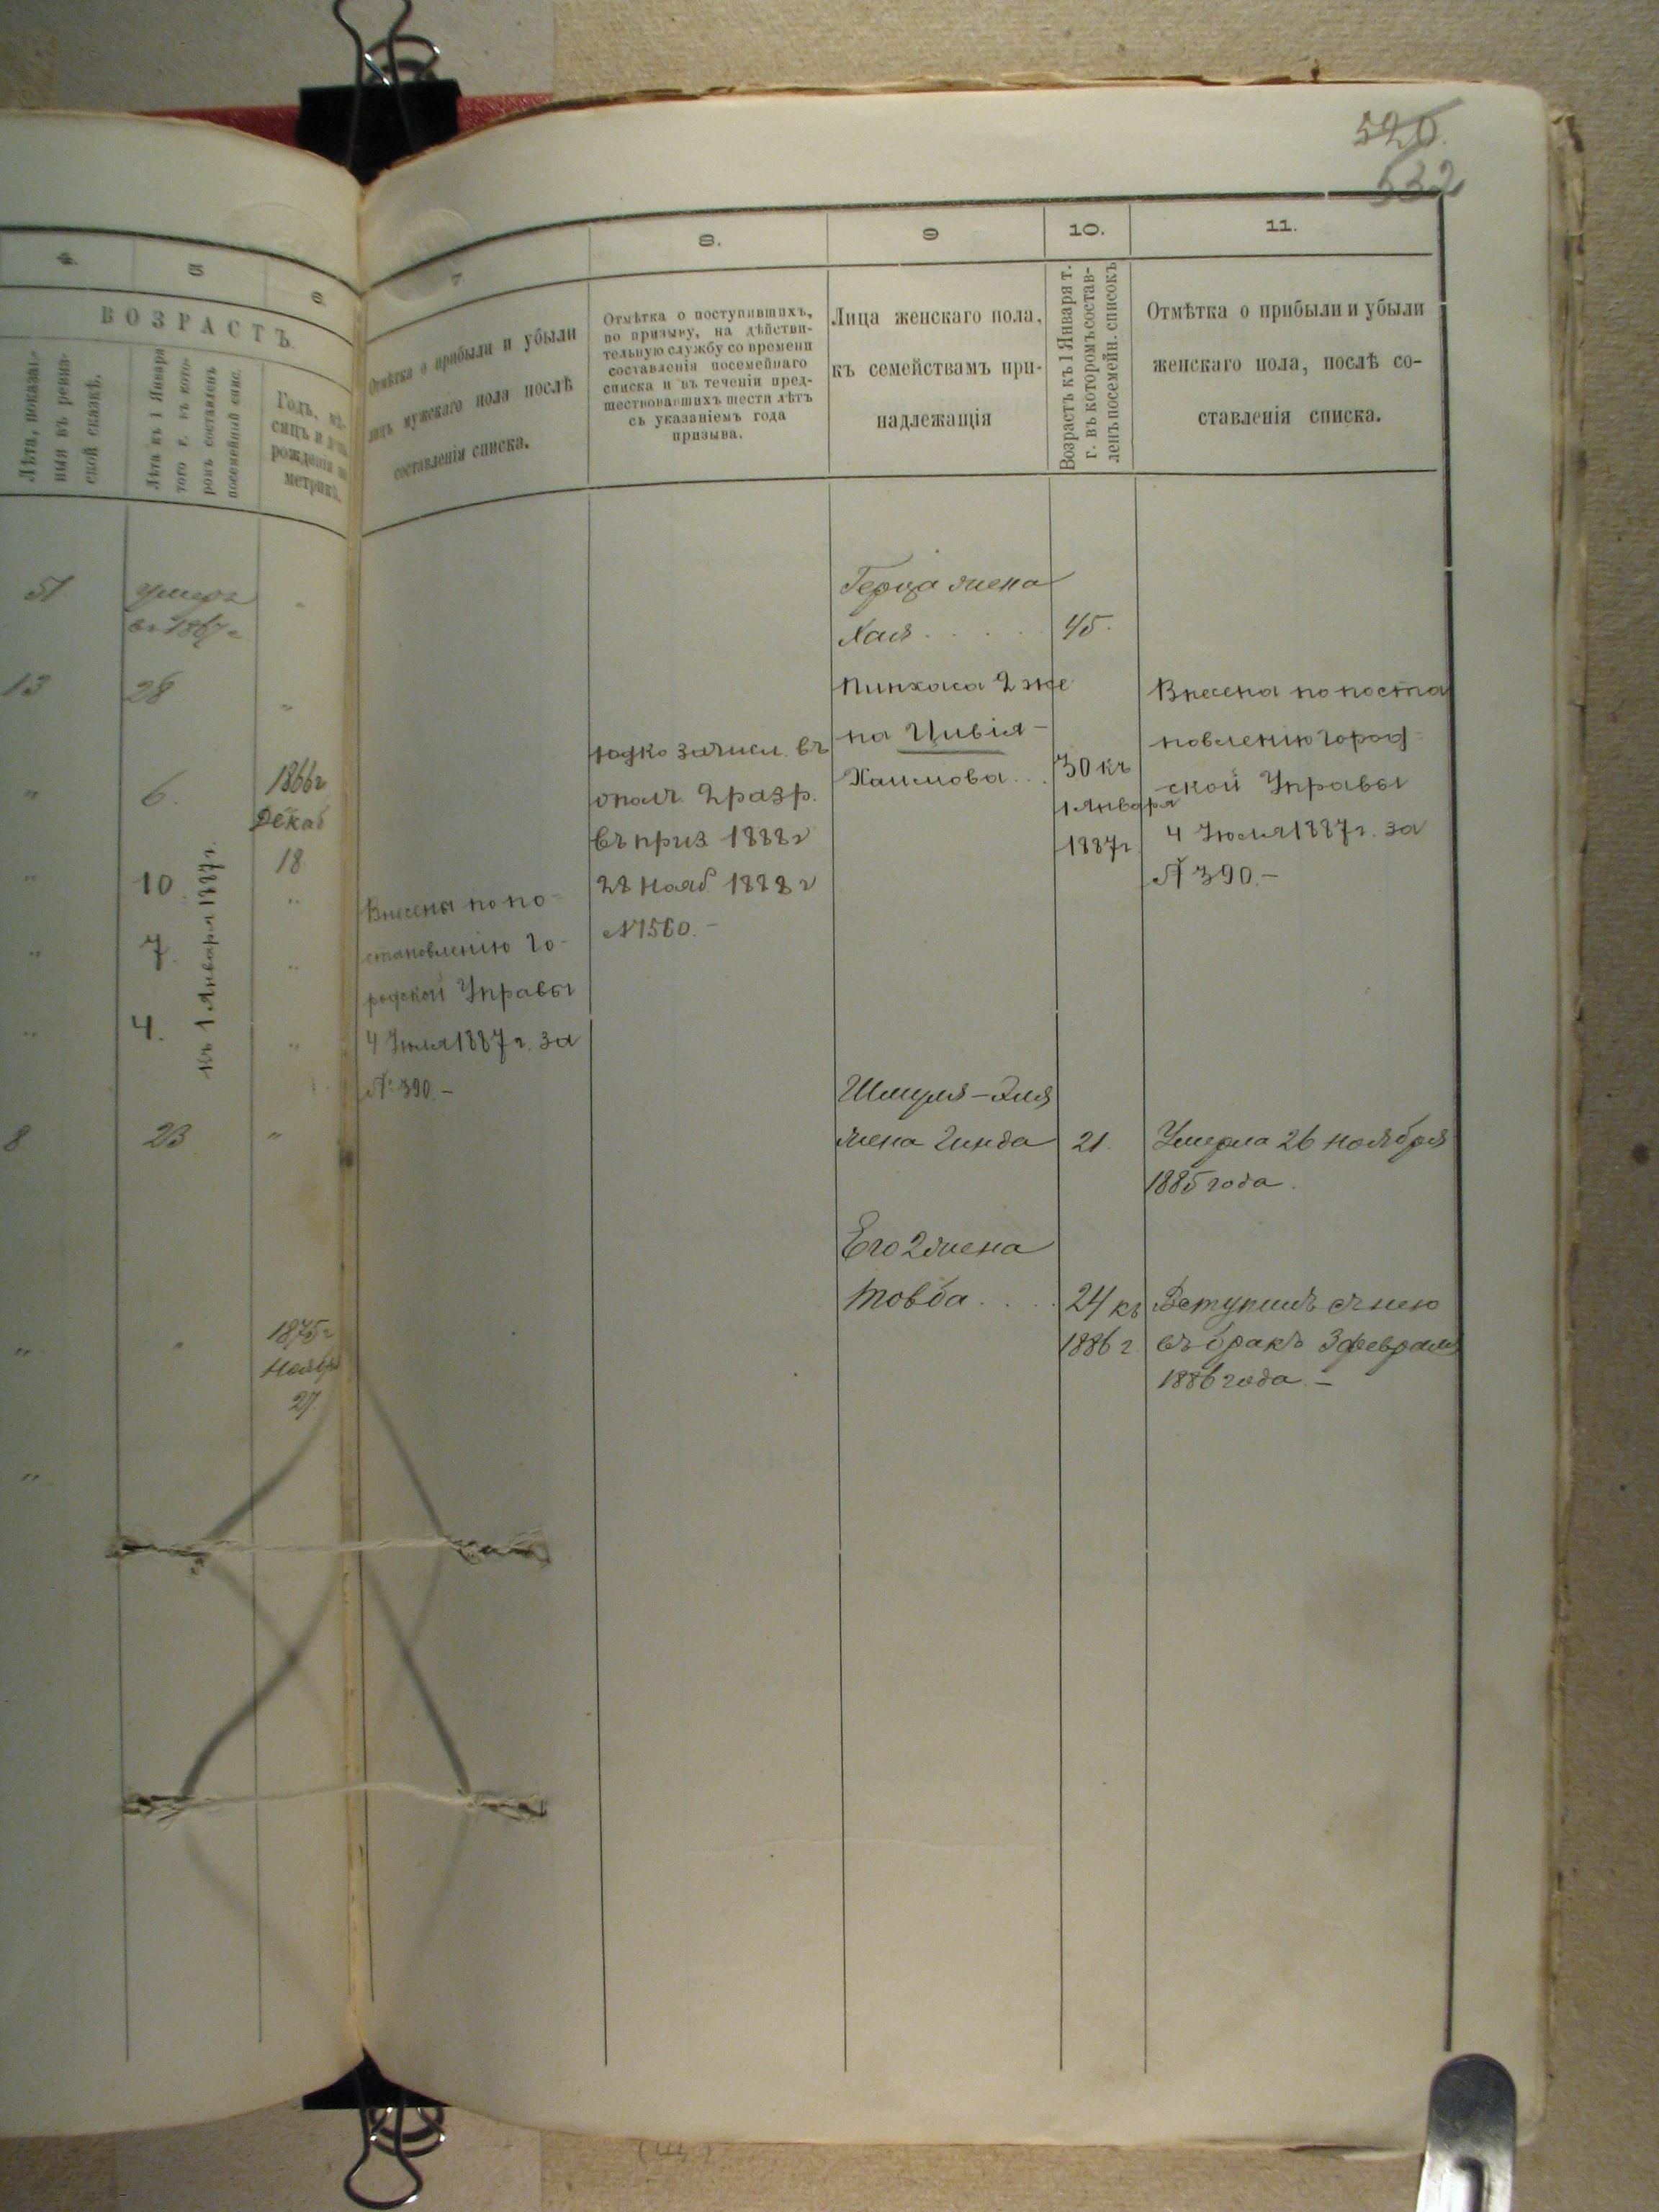 520.
532
4.
5
6.
ВОЗРАСТЪ
Лѣта, показан-
ныя въ ревиз-
ской сказкѣ.
Лѣта къ 1 Января
того г. въ кото-
ромъ составленъ
посемейный спис.
Годъ, мѣ-
сяцъ и день
рожденія по
метрикѣ.
51
умеръ
въ 1867 г
13
28
"
"
6.
1866г
Декаб
18
"
10.
"
"
7.
"
"
4.
"
къ 1 Января 1887 г.
8
23
"
"
1875г
Ноябр
27
"
7.
8.
9
10.
11.
Отмѣтка о прибыли и убыли
лицъ мужскаго пола послѣ
составленія списка.
Отмѣтка о поступившихъ,
по призыву, на дѣйстви-
тельную службу со времени
составленія посемейнаго
списка и въ теченіи пред-
шествовавшихъ шести лѣтъ
съ указаніемъ года
призыва.
Лица женскаго пола,
къ семействамъ при-
надлежащія
Возрастъ къ 1 Января т.
г. въ которомъ состав-
ленъ посемейн. списокъ
Отмѣтка о прибыли и убыли
женскаго пола, послѣ со-
ставленія списка.
Внесены по по-
становленію Го-
родской Управы
4 Іюля 1887 г. за
№ 390.-
Юдко зачисл. въ
ополч. 2 разр.
въ приз. 1888 г
28 Нояб. 1888 г
№ 1560.-
Герца жена
Хая . . . . . 45.
Пинхаса 2 же
на Цивія -
Хаимова . . . 30 къ
1 Января
1887 г
Внесена по поста
новленію город-
ской Управы
4 Іюля 1887 г. за
№ 390.-
Шмуля-Эля
жена Гинда 21. Умерла 26 ноября
1885 года.
Его 2 жена
Товба . . . . 24 къ Вступилъ съ нею
1886 г. въ бракъ 3 февраля
1886 года.-